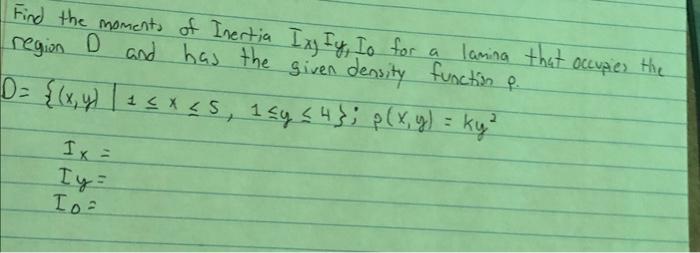 Find the moments of Inertia Ix, Iy, I0 for a lamina that occupies the
region D and has the given density function ρ.
D= {(x,y) | 1 ≤ x ≤ 5, 1≤y ≤ 4}; ρ(x,y) = ky²
Ix =
Iy=
I0=